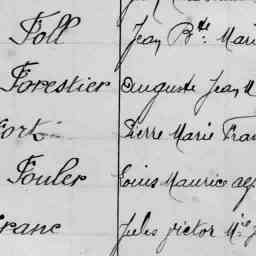 Foll Jean Bte Mari
Forestier Auguste Jean M
Fort Pierre Marie Fra
Fouler Louis Maurice alp
Franc Jules Victor Mie J